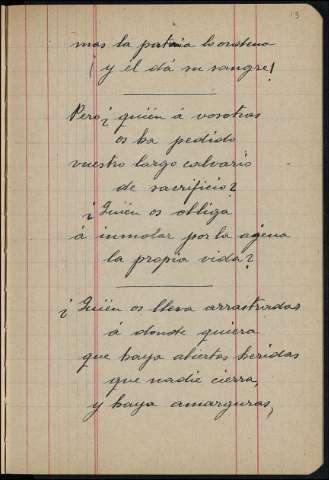 13
mas la patria lo ordena
¡y él dá su sangre!
Pero ¿quién á vosotras
os ha pedido
vuestro largo calvario
de sacrificio?
¿Quién os obliga
á inmolar por la agena
la propia vida?
¿Quién os lleva arrastradas
á donde quiera
que haya abiertas heridas
que nadie cierra,
y haya amarguras,